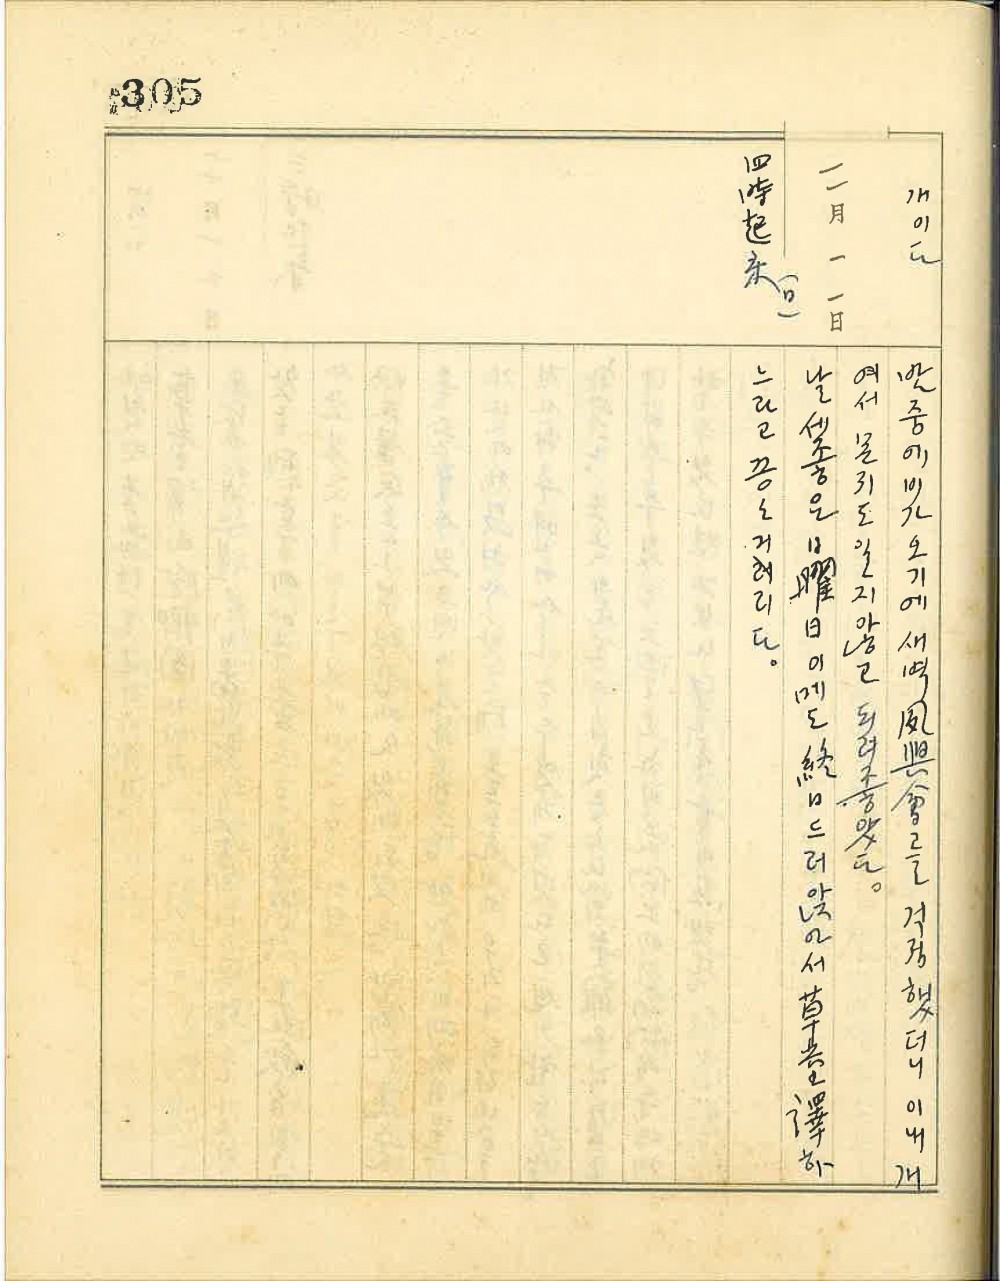 305
개이다
一一月 一一日
(日)
四時起床
밤중에 비가 오기에 새벽 夙興會를 걱정했더니 이내 개
여서 몬지도 일지 않고 되려 좋았다。
날세 좋은 日曜日이메도 終日 드러앉아서 譯하
느라고